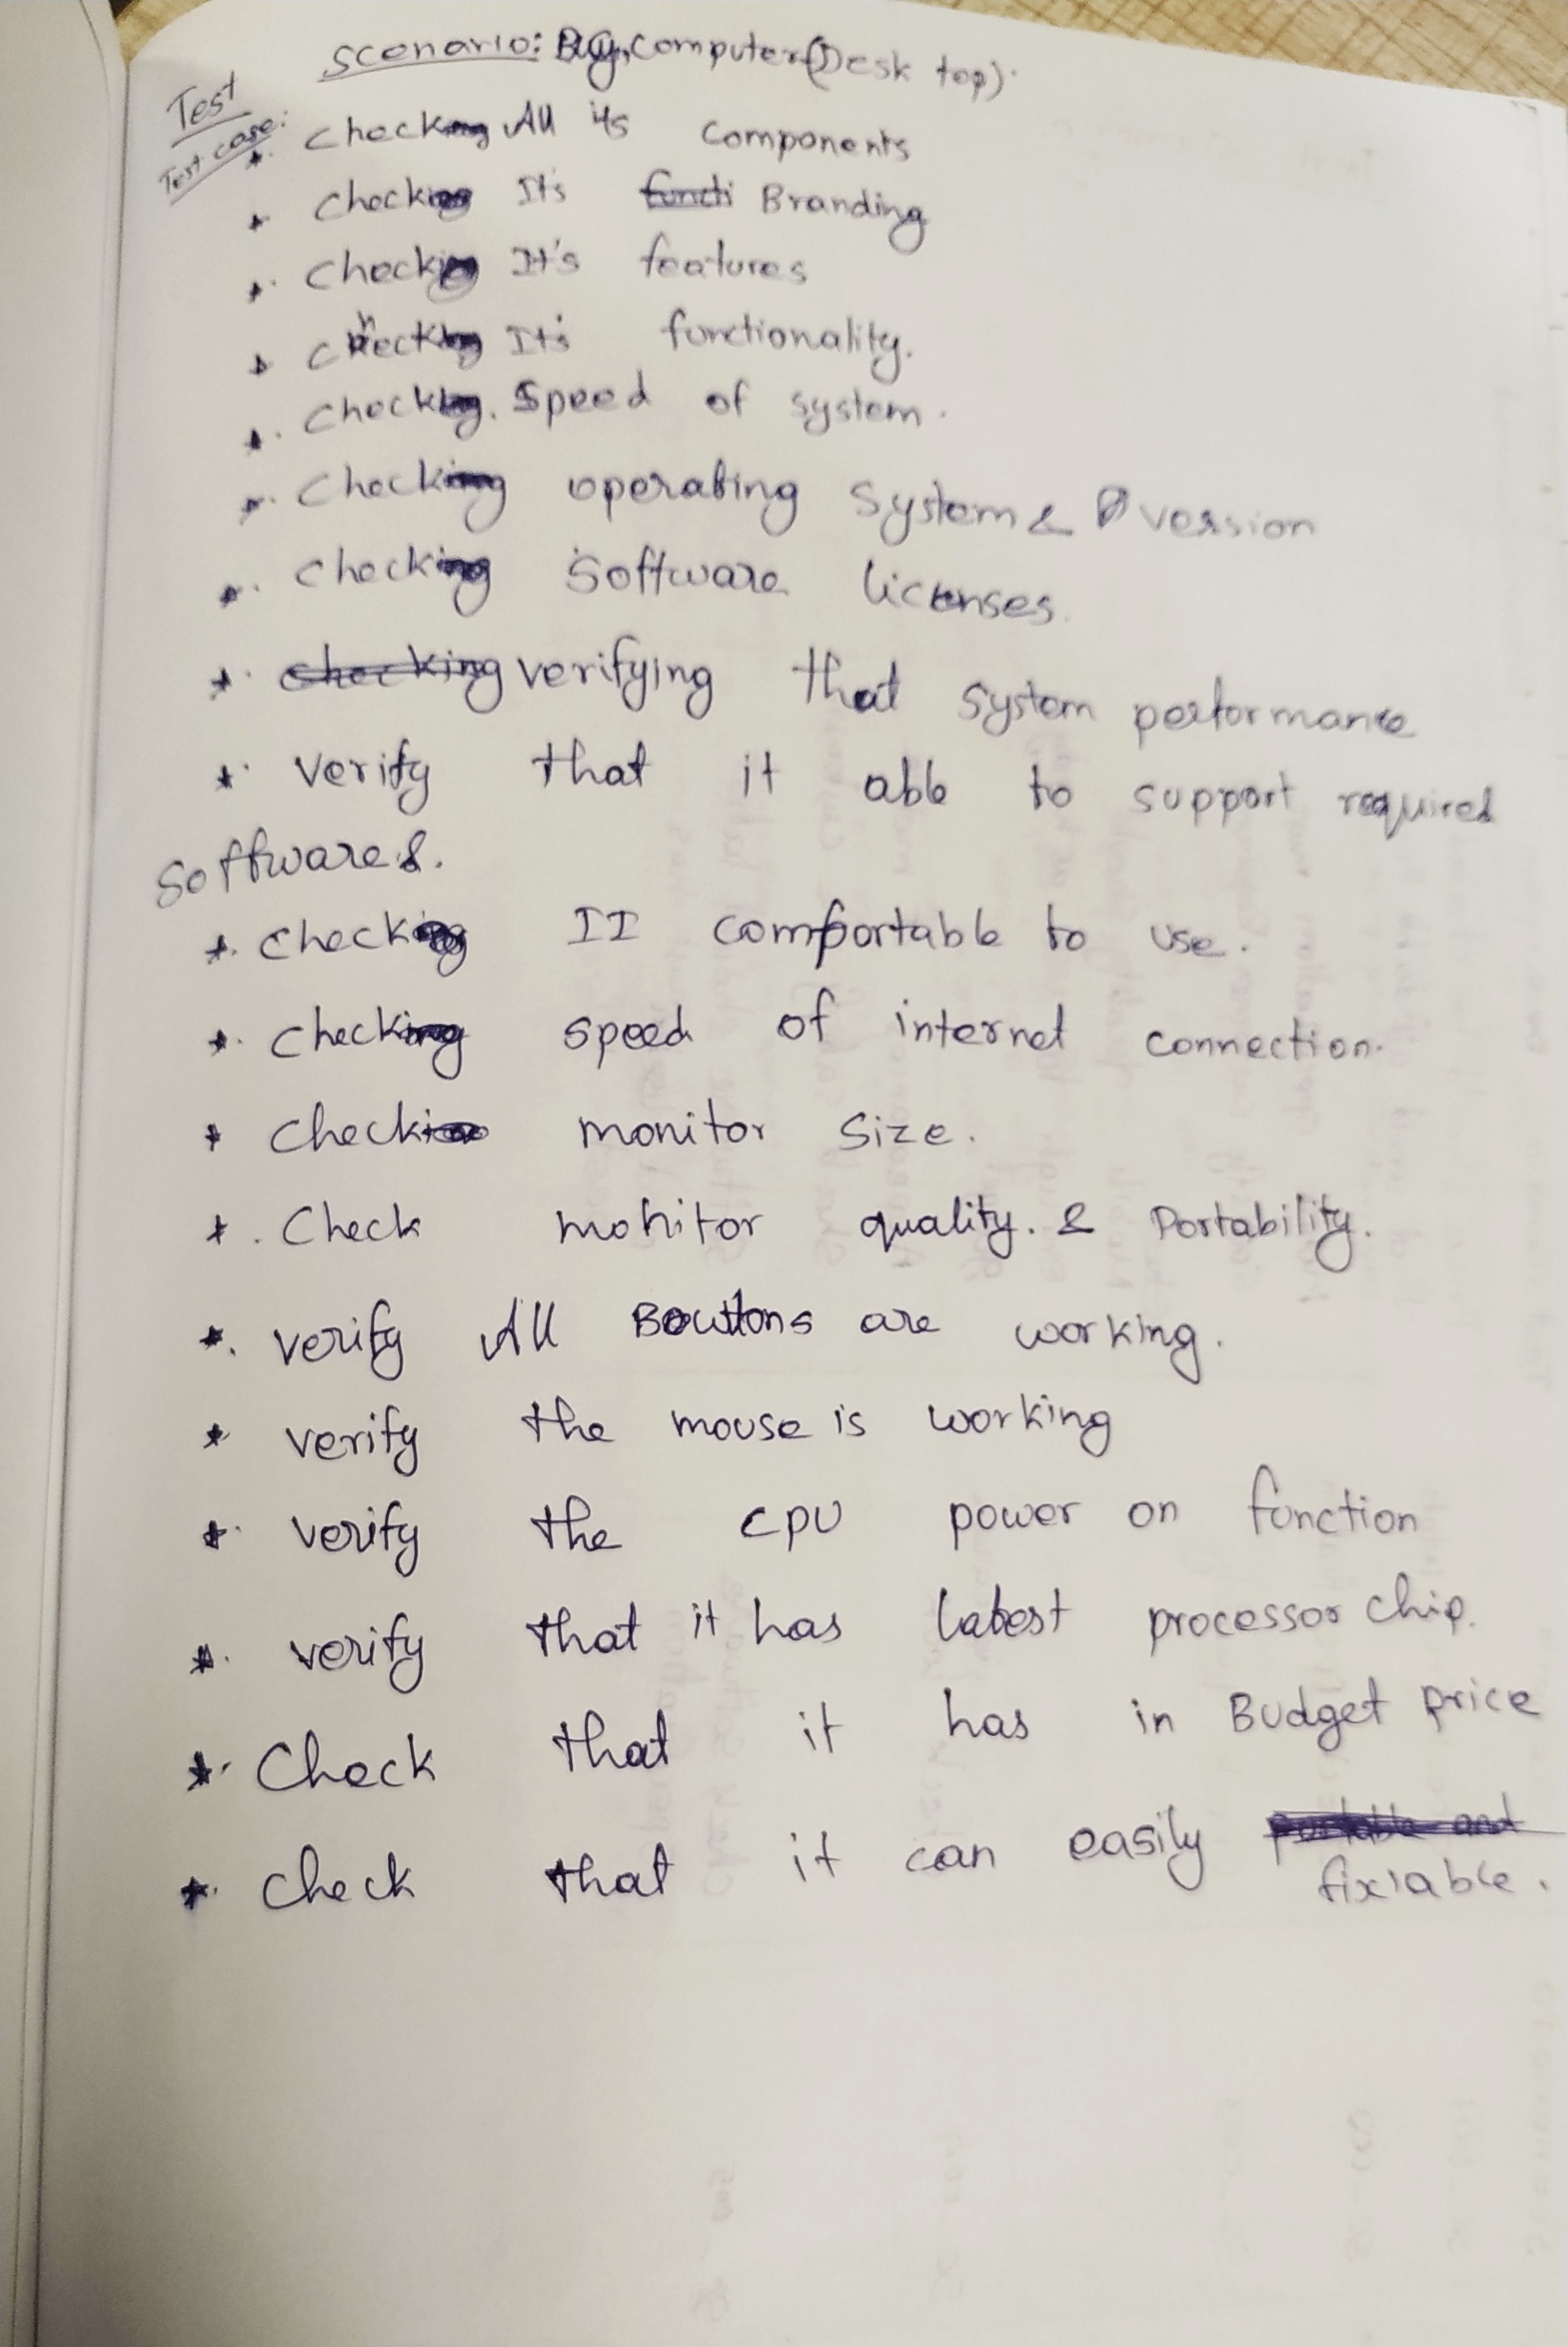 Test scenario: Buy computer(Desk top).
Test case:
* check All its components
* check It's Branding
* check It's features
* check It's functionality.
* check Speed of system.
* check operating System & version
* check Software licenses.
* verifying that system performance
* verify that it able to support required
softwares.
* check II comfortable to use.
* check speed of internet connection.
* check monitor size.
* . Check monitor quality. & Portability.
*. verify All Bowttons are working.
* verify the mouse is working
* verify the CPU power on function
* verify that it has latest processor chip.
* Check that it has in Budget price
* check that it can easily
fixiable.